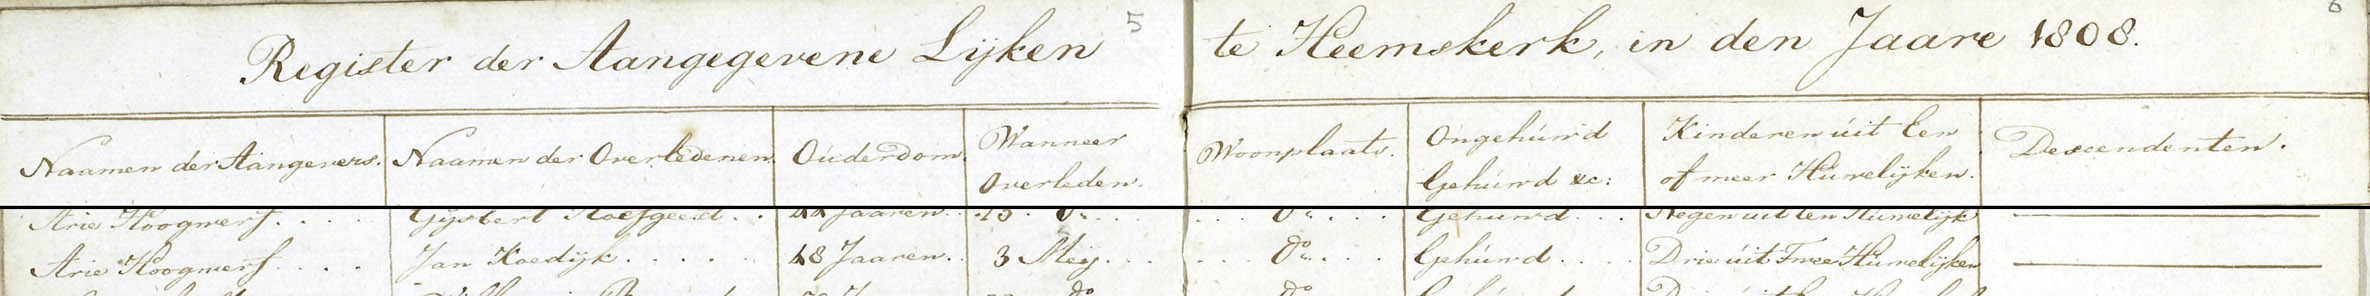 5
6
Register der Aangegevene Lijken te Heemskerk, in den Jaare 1808.
Naamen der Aangevers. Naamen der Overledenen. Ouderdom. Wanneer Overleden. Woonplaats. Ongehúwd Gehúwd &c: Kinderen úit Een of meer Húwelijken. Descendenten.
Arie Hoogwerf. . . . Gijsbert . . 44 Jaaren. . 13. do. . . . do. . . . Gehúwd. . . Negen uit een Huwelijk
Arie Hoogwerf . . . . Jan Koedijk. . . . . . 48 Jaaren. . 3 Meij. . . . . . do. . . . Gehúwd. . . . Drie úit Twee Húwelijken